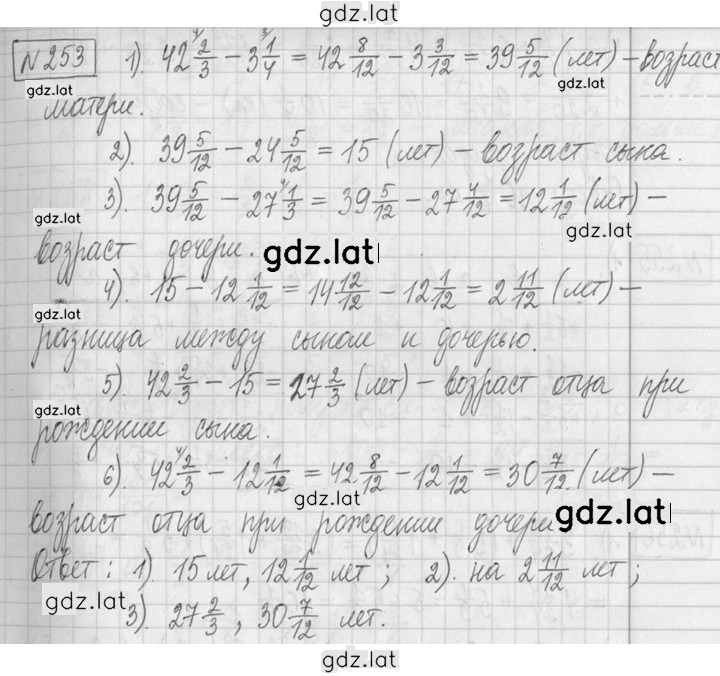 gdz.lat
N 253 1). 42 2/3 − 3 1/4 = 42 8/12 − 3 3/12 = 39 5/12 (лет) − возраст
gdz.lat
gdz.lat
матери.
2). 39 5/12 − 24 5/12 = 15 (лет) − возраст сына.
3). 39 5/12 − 27 1/3 = 39 5/12 − 27 4/12 = 12 1/12 (лет) −
gdz.lat
gdz.lat
возраст дочери.
gdz.lat
4). 15 − 12 1/12 = 14 12/12 − 12 1/12 = 2 11/12 (лет) −
gdz.lat
разница между сыном и дочерью.
5). 42 2/3 − 15 = 27 2/3 (лет) − возраст отца при
gdz.lat
рождении сына.
6). 42 2/3 − 12 1/12 = 42 8/12 − 12 1/12 = 30 7/12 (лет) −
gdz.lat
gdz.lat
возраст отца при рождении дочери
gdz.lat
Ответ: 1). 15 лет, 12 1/12 лет; 2). на 2 11/12 лет;
gdz.lat
3). 27 2/3, 30 7/12 лет.
gdz.lat